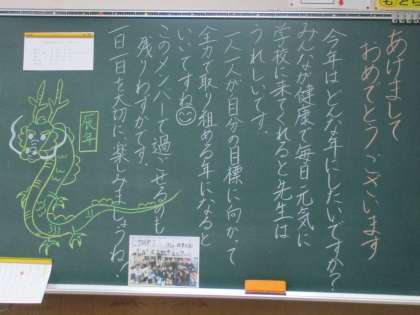 あけまして
おめでとうございます
今年はどんな年にしたいですか?
みんなが健康で毎日元気に
学校に来てくれると先生は
うれしいです。
一人一人が自分の目標に向かって
全力で取り組める年になると
いいですね
このメンバーで過ごせるのも
残りわずかです。
一日一日を大切に楽しみましょうね!
辰年